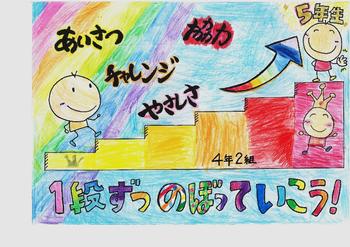 あいさつ
協力
チャレンジ
やさしさ
5年生
4年2組
1段ずつのぼっていこう!